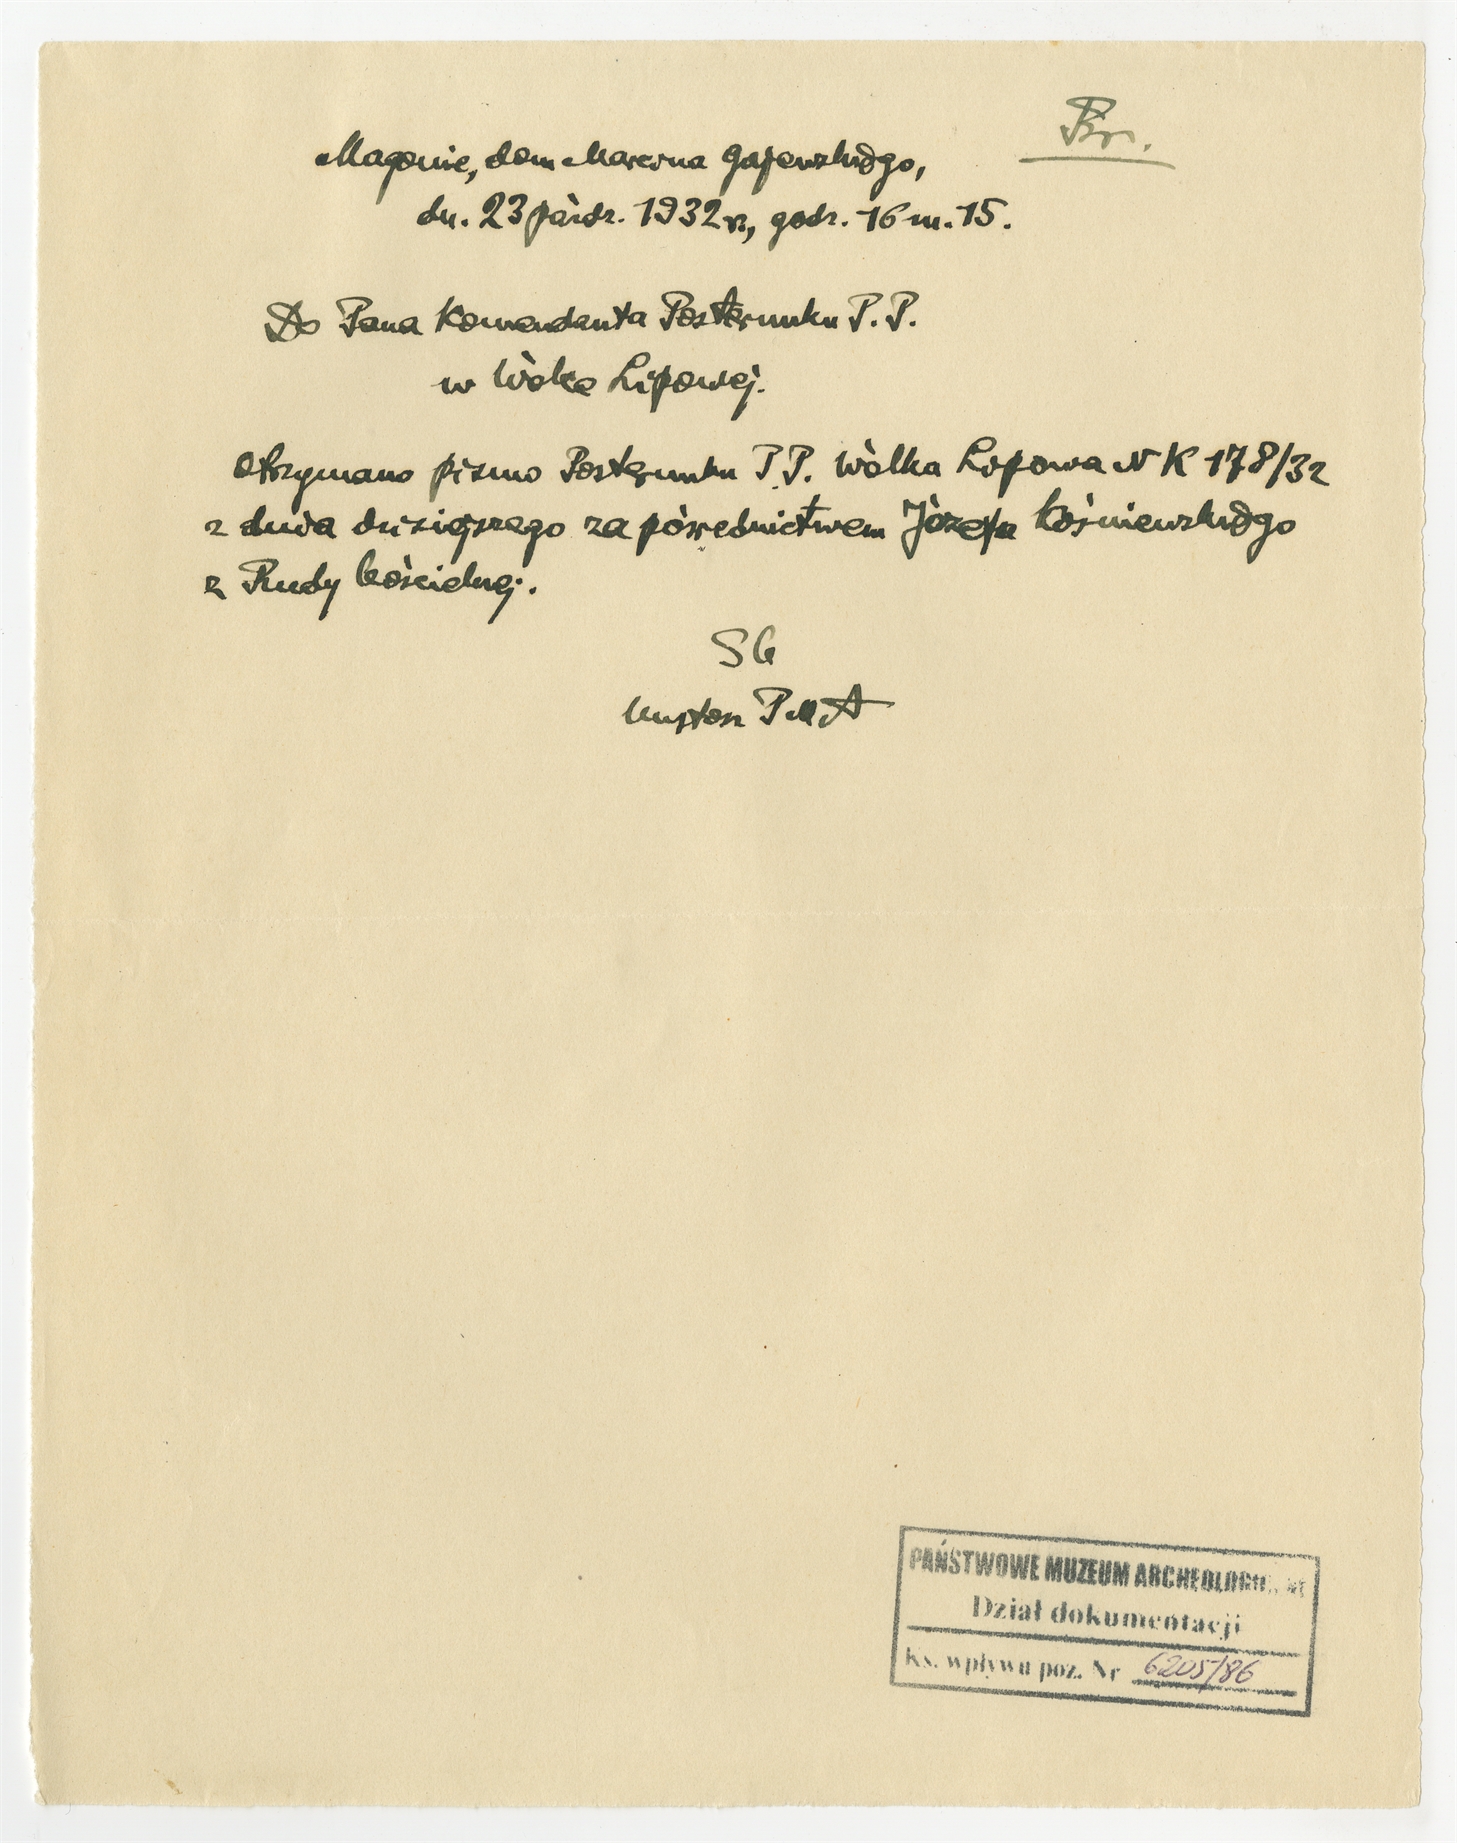 Br.
Magonie, dom Marcina Gajewskiego,
dn. 23 paźdz. 1932 r., godz. 16 m. 15.
Do Pana Komendanta Posterunku P. P.
w Wólce Lipowej.
Otrzymano pismo Posterunku P.P. Wólka Lipowa N K 178/32
z dnia dzisiejszego za pośrednictwem Józefa Kośniewskiego
z Rudy Kościelnej.
SK
Kustosz PMA
PAŃSTWOWE MUZEUM
Dział dokumentacji
Ks. wpływu poz. Nr 6205/86